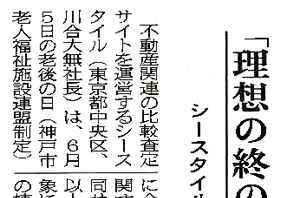 「理想の終の
シースタイル
不動産関連の比較査定
サイトを運営するシース
タイル（東京都中央区、
川合大無社長）は、6月
5日の老後の日（神戸市
老人福祉施設連盟制定）
に
関す
同
以上
象に
の